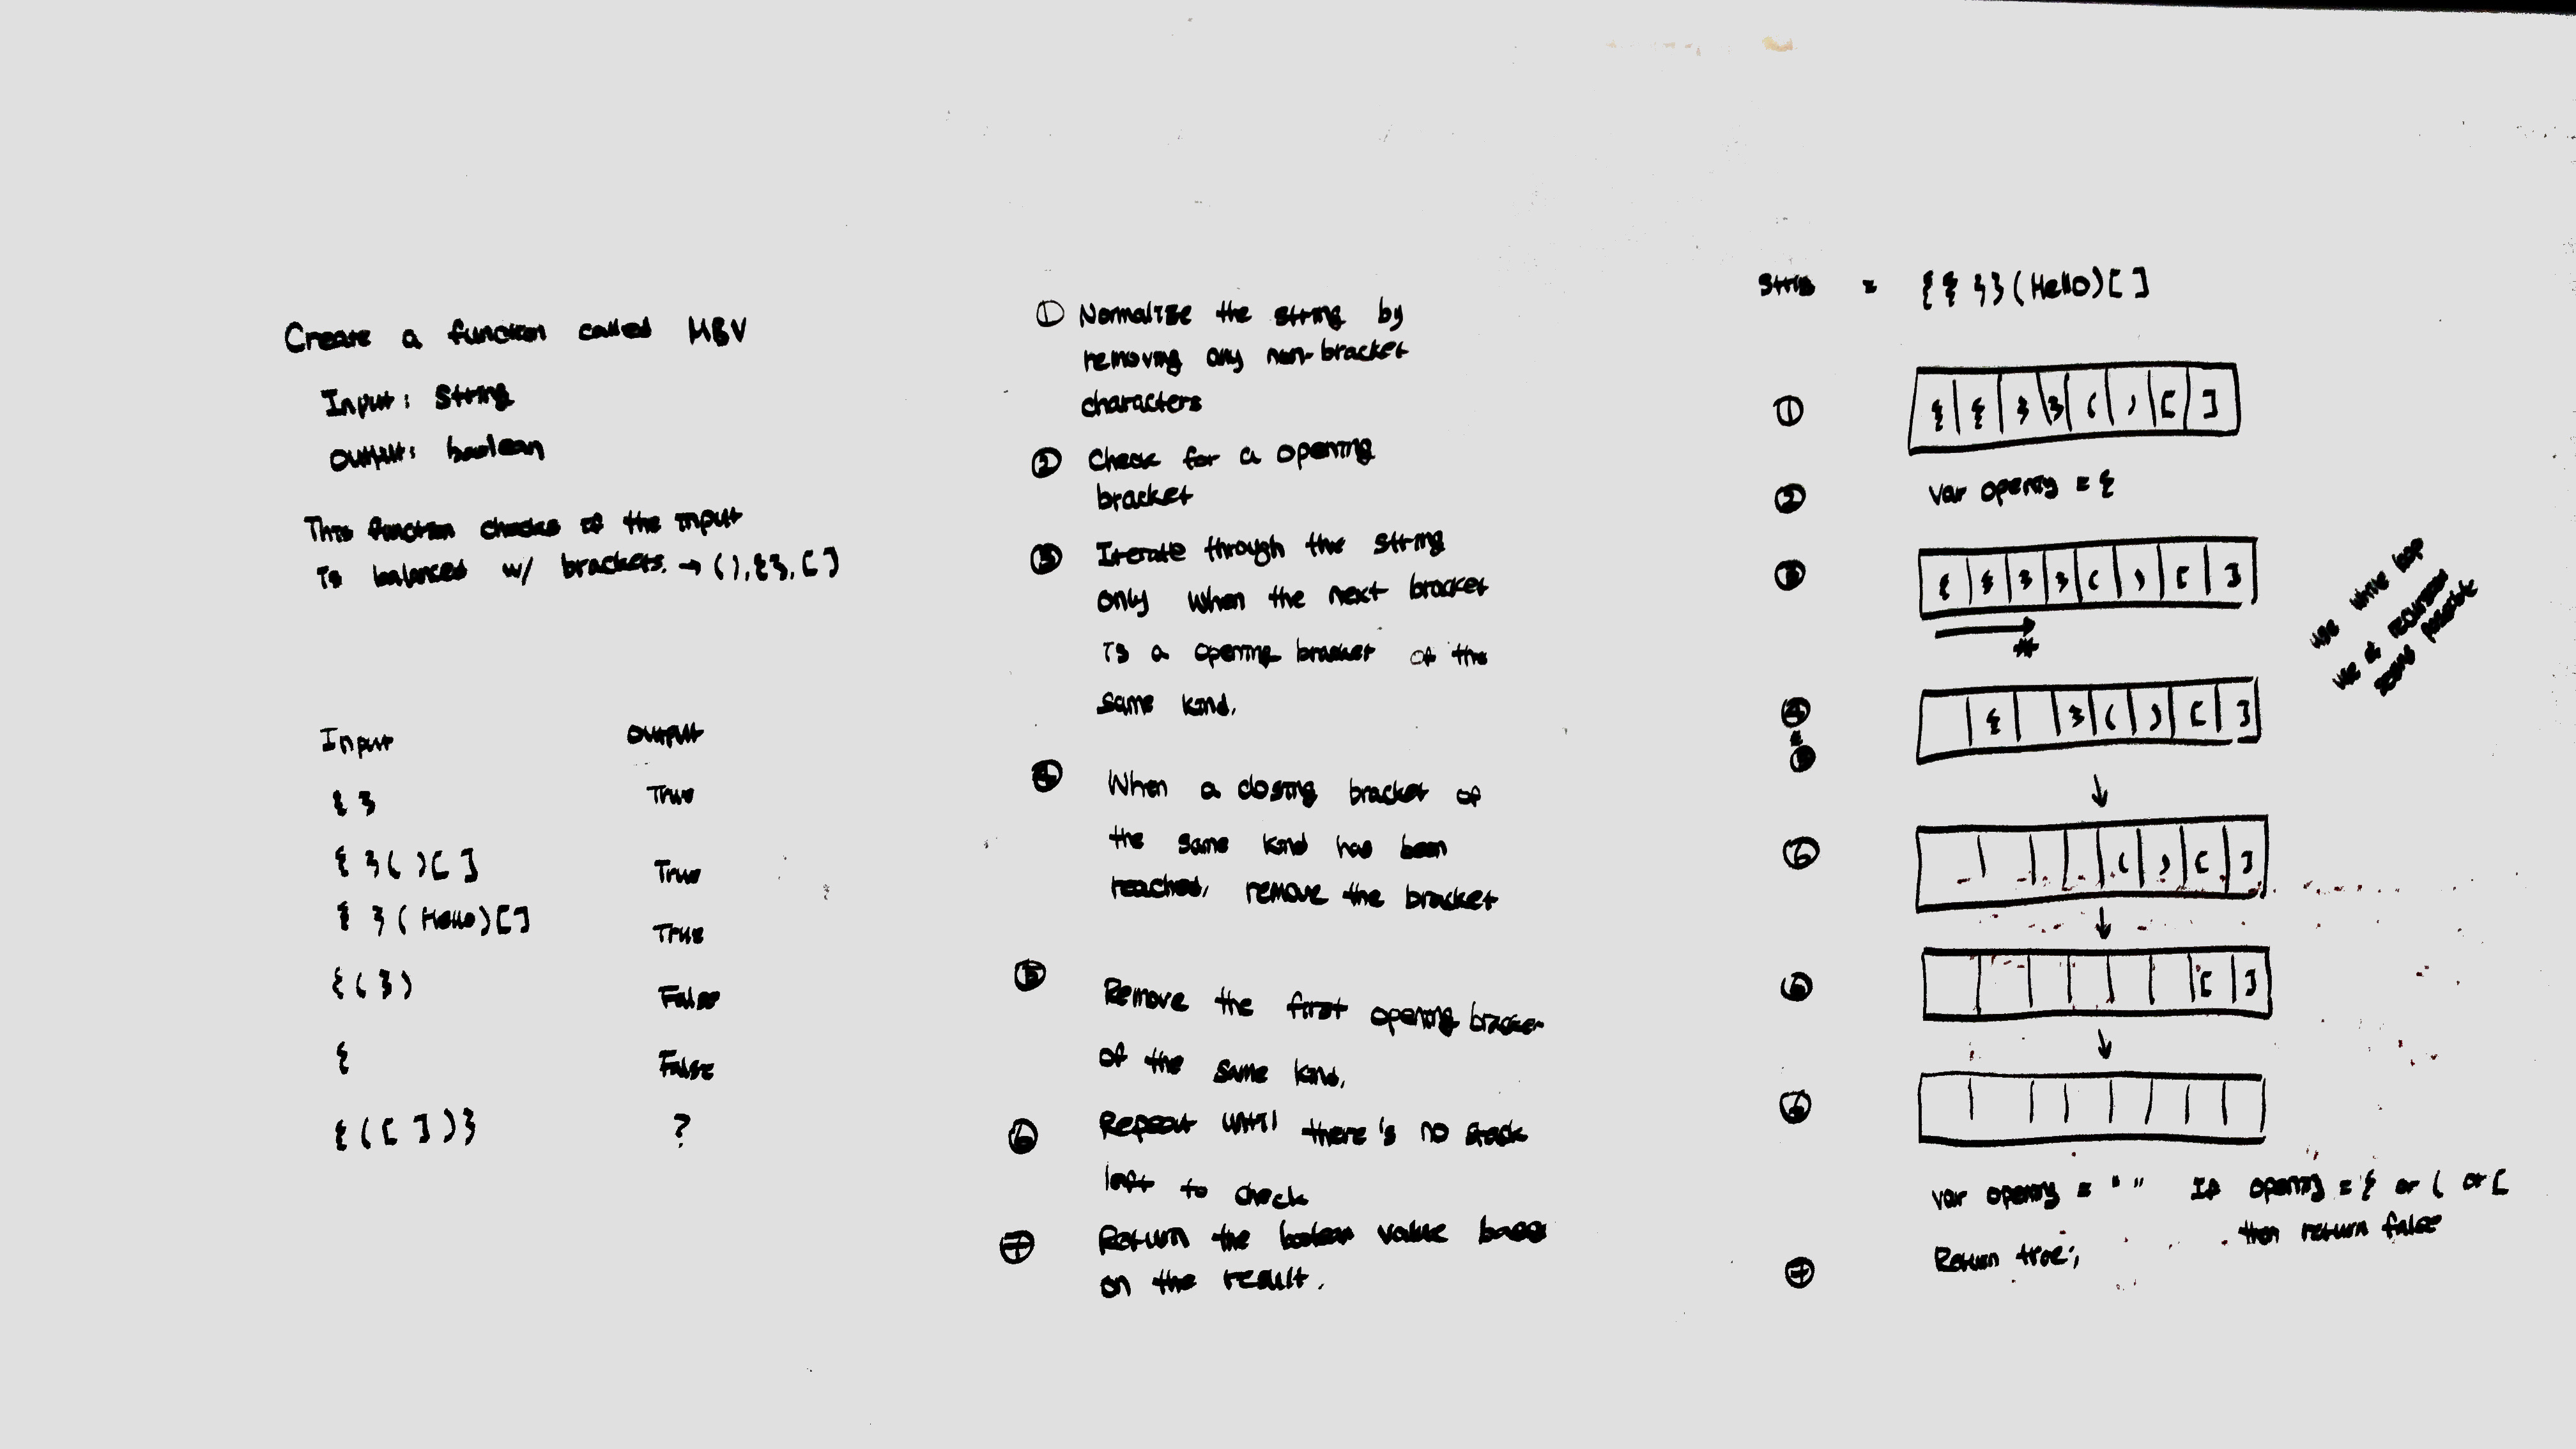 Create a function called MBV
Input: String
Output: boolean
This function checks if the input
is balanced w/ brackets. → (), {}, []
Input Output
{ } True
{ } ( ) [ ] True
{ } ( Hello ) [ ] True
{ ( } ) False
{ False
{ ( [ ] ) } ?
① Normalize the string by
removing any non-bracket
characters
② Check for a opening
bracket
③ Iterate through the string
only when the next bracket
is a opening bracket of the
same kind.
④ When a closing bracket of
the same kind has been
reached, remove the bracket
⑤ Remove the first opening bracket
of the same kind.
⑥ Repeat until there's no stack
left to check
⑦ Return the boolean value base
on the result.
String = { { } } ( Hello ) [ ]
① { { } } ( ) [ ]
② var opening = {
③ { { } } ( ) [ ]
use while loop
use of recursion
seems possible
④ { } ( ) [ ]
⑤
⑥ ( ) [ ]
⑥ [ ]
⑥
var opening = " " If opening = { or ( or [
then return false
⑦ Return true;